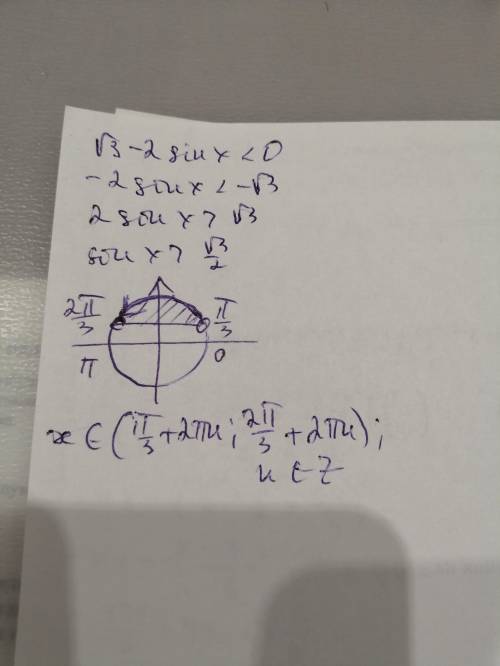 √3 - 2 sin x < 0
-2 sin x < -√3
2 sin x > √3
sin x > √3/2
2π/3 π/3
π 0
x ∈ (π/3 + 2πn; 2π/3 + 2πn);
n ∈ Z